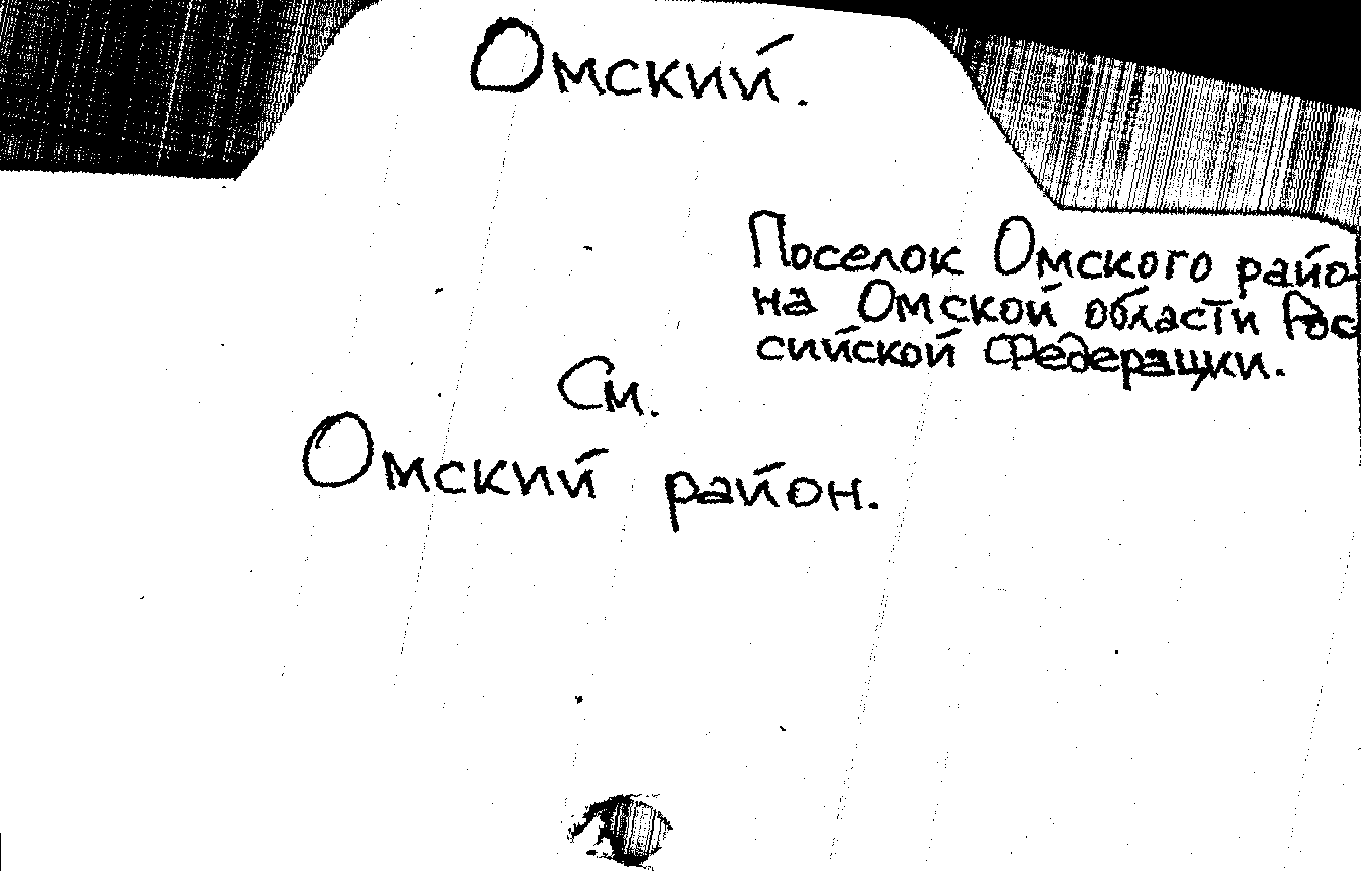 Омский.
Поселок Омского райо-
на Омской области Рос
сийской Федерации.
См.
Омский район.